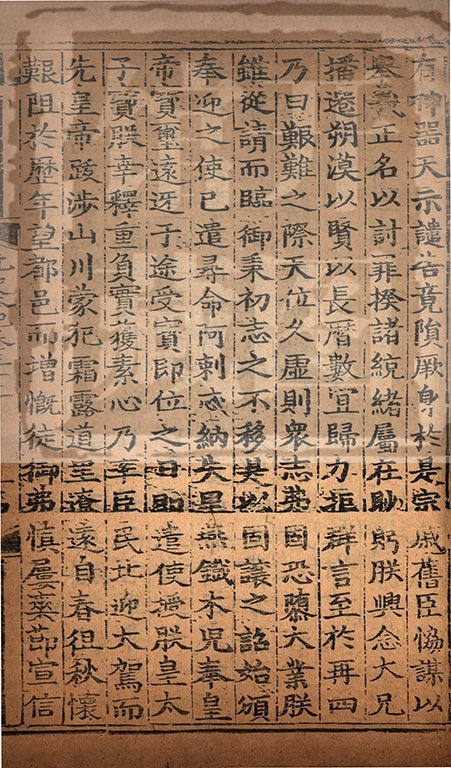 有神器天示譴告竟隕厥身於是宗戚舊臣恊謀以
舉義正名以討罪揆諸統緒屬在眇躬朕興念大兄
播遷朔漠以賢以長曆數宜歸力拒群言至於再四
乃曰艱難之際天位久虛則衆志弗固恐隳大業朕
雖從請而臨御秉初志之不移是以固讓之詔始頒
奉迎之使已遣尋命阿剌忒納失里燕鐵木兒奉皇
帝寶璽遠迓于途受寶即位之日即遣使授朕皇太
子寶朕幸釋重負實獲素心乃率臣民北迎大駕而
先皇帝跋涉山川蒙犯霜露道里遼遠自春徂秋懷
艱阻於歷年望都邑而增慨徒御弗慎屢爽節宣信